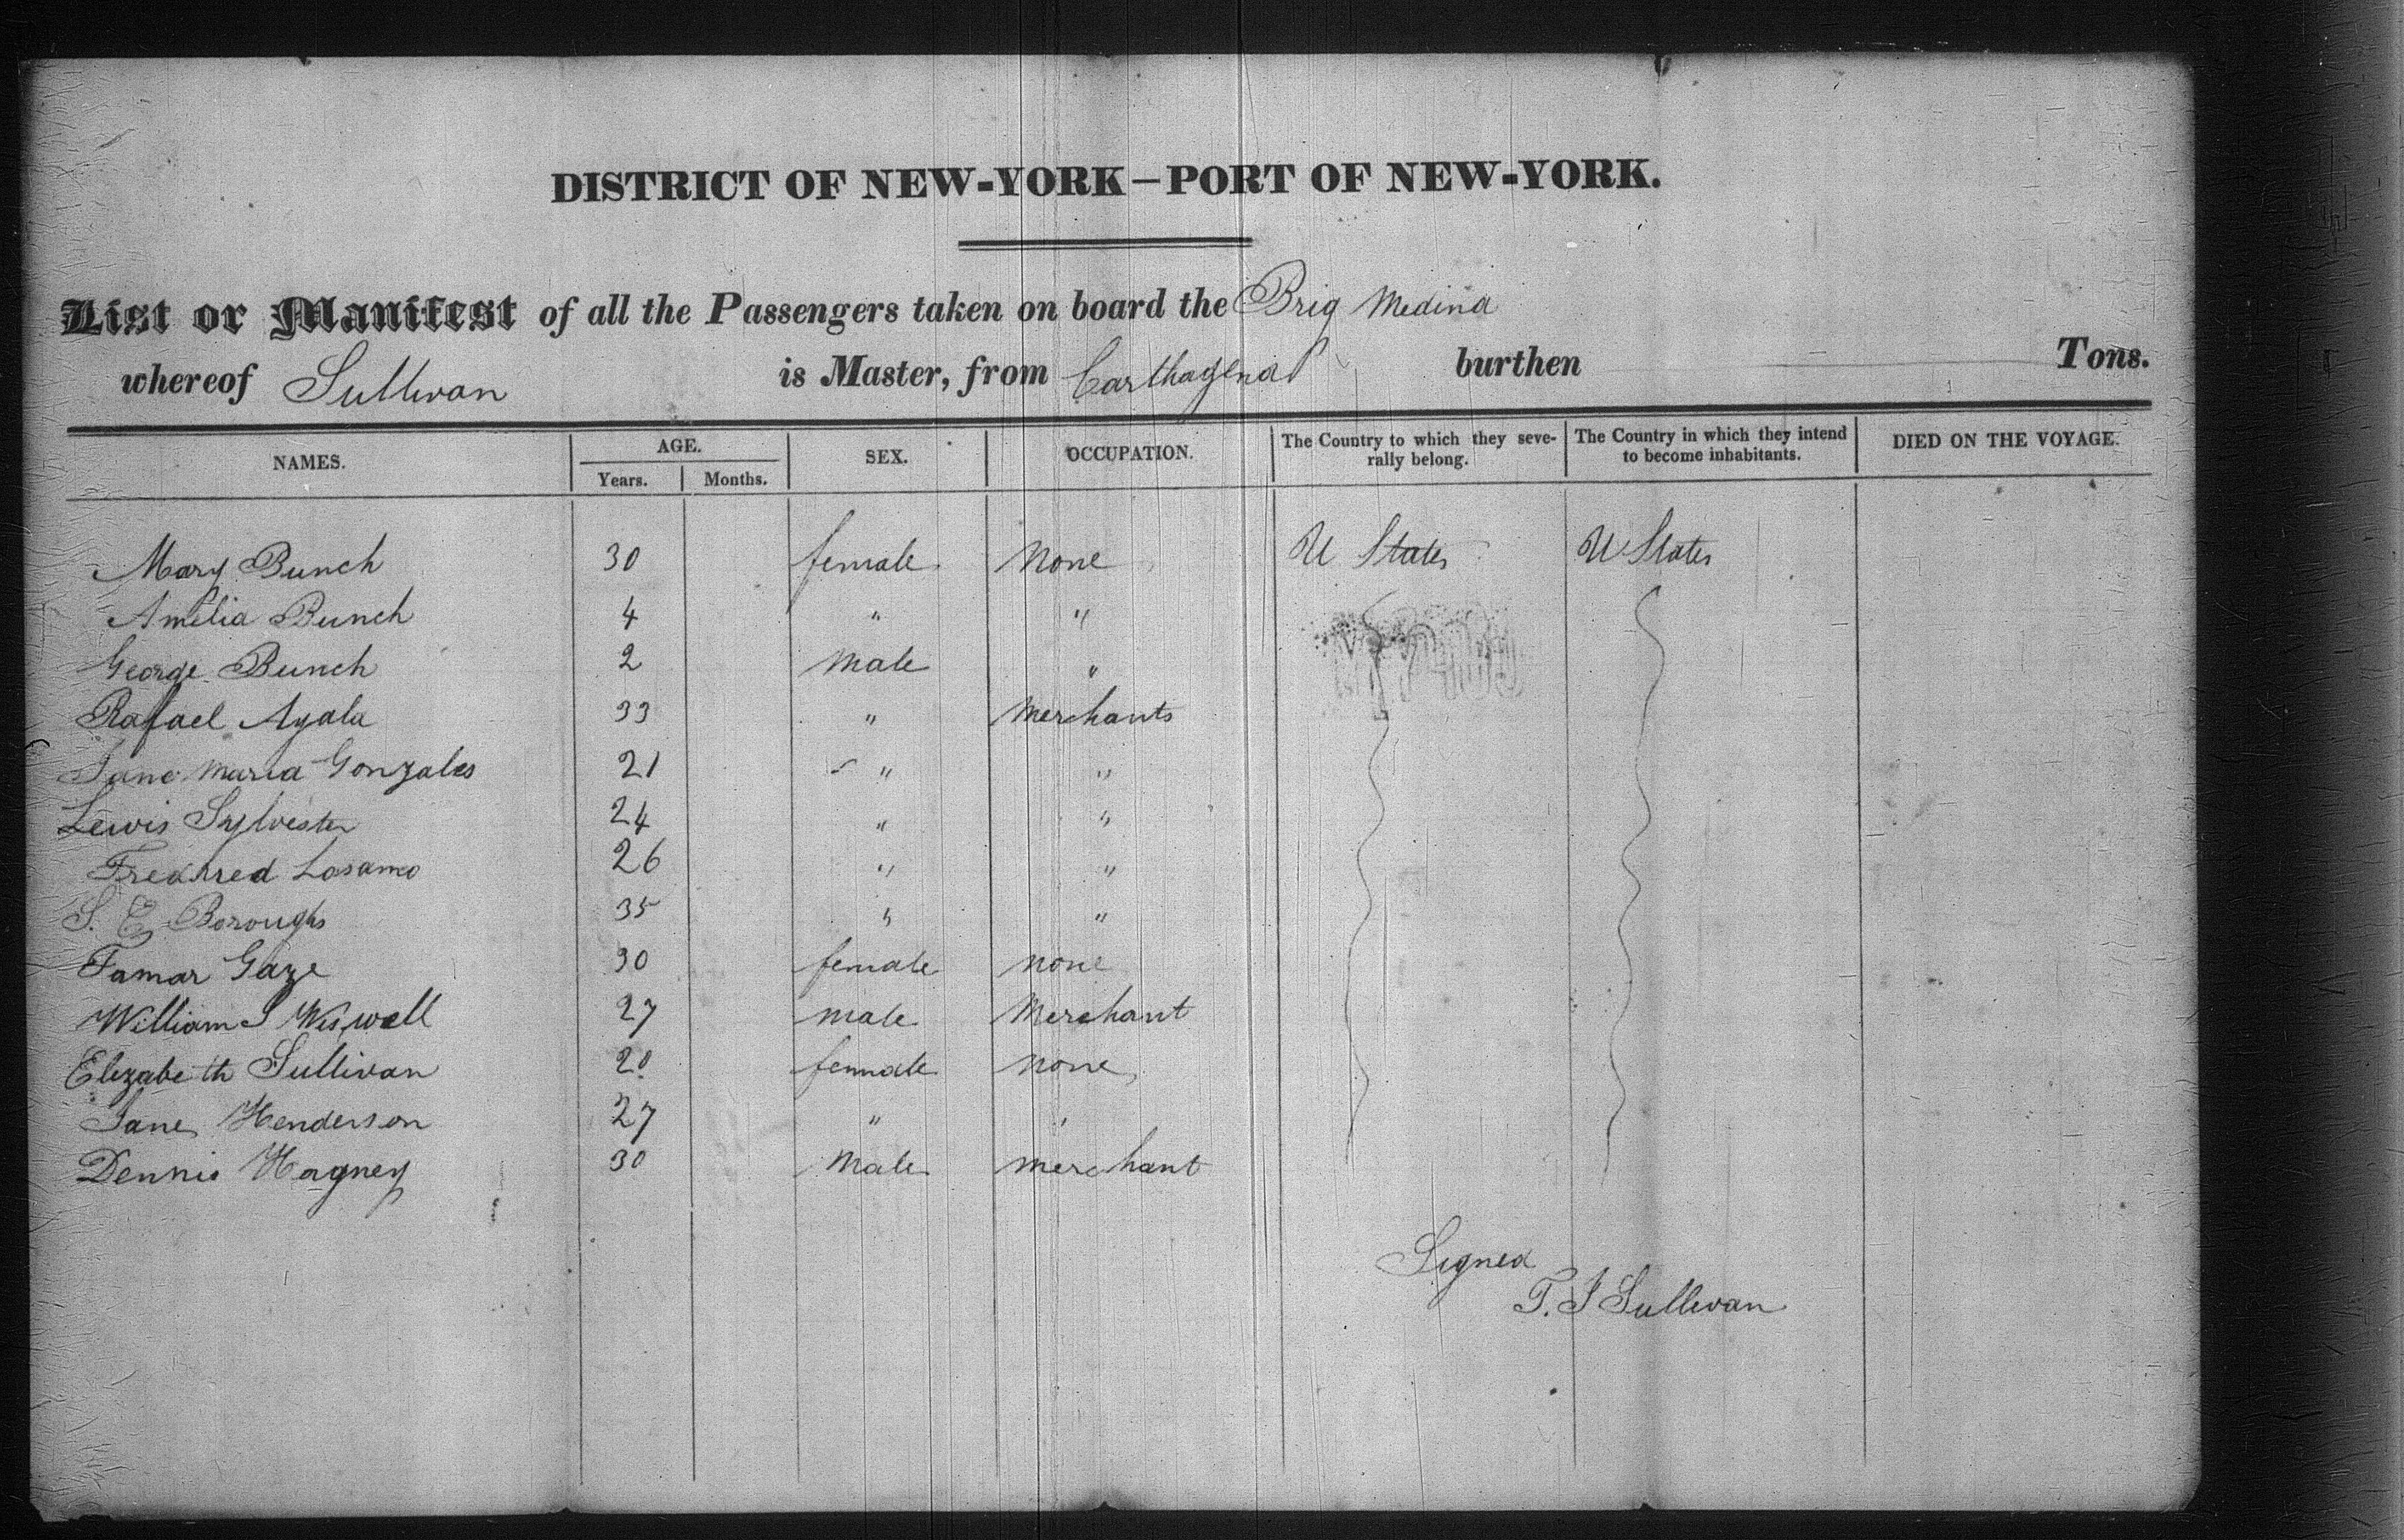 DISTRICT OF NEW-YORK—PORT OF NEW-YORK.
List or Manifest of all the Passengers taken on board the Brig Medina
whereof Sullivan is Master, from Carthagena burthen Tons.
NAMES. AGE. Years. Months. SEX. OCCUPATION. The Country to which they severally belong. The Country in which they intend to become inhabitants. DIED ON THE VOYAGE.
Mary Bunch 30 female None U States U States
Amelia Bunch 4 " "
George Bunch 2 Male "
Rafael Ayala 33 " Merchants
Jane Maria Gonzales 21 " "
Lewis Sylvester 24 " "
Losamo 26 " "
S. E Boroughs 35 " "
Tamar Gaze 30 female none
William S Wiswell 27 male Merchant
Elizabeth Sullivan 20 female none
Jane Henderson 27 " "
Dennis Hagney 30 Male merchant
Signed
T. J Sullivan